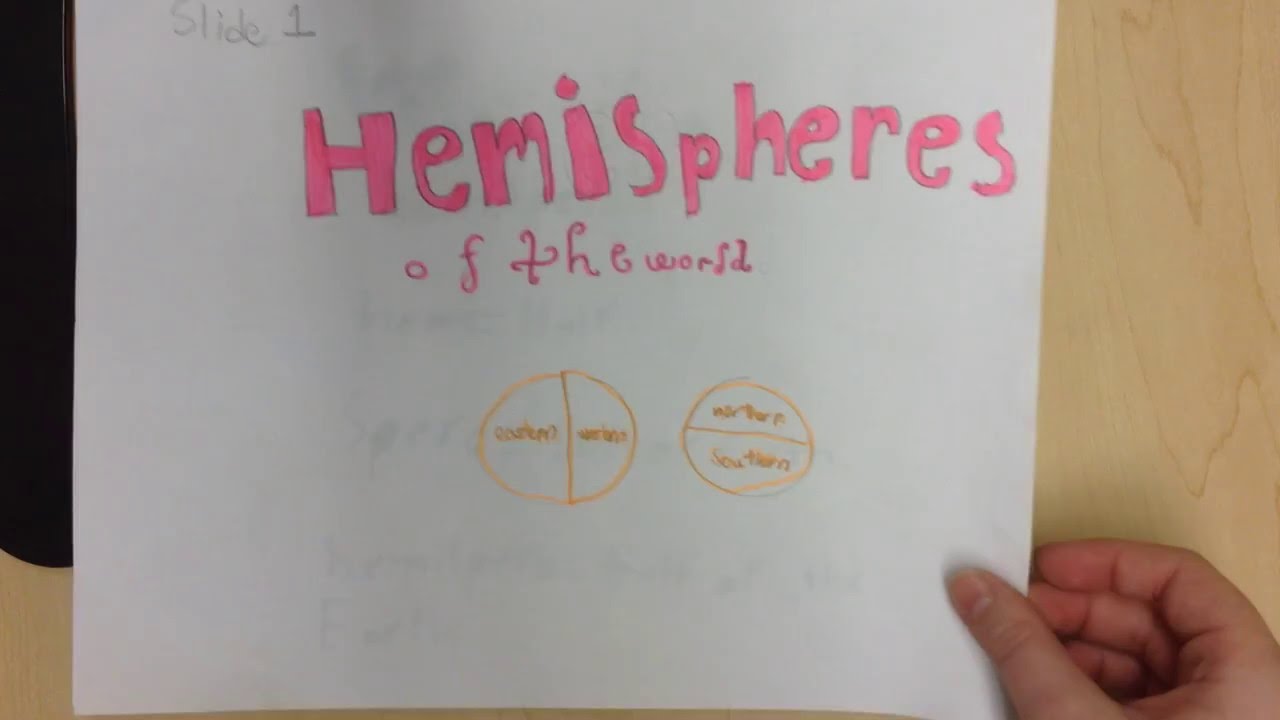 Slide 1
Hemispheres
of the world
eastern western
northern
Southern